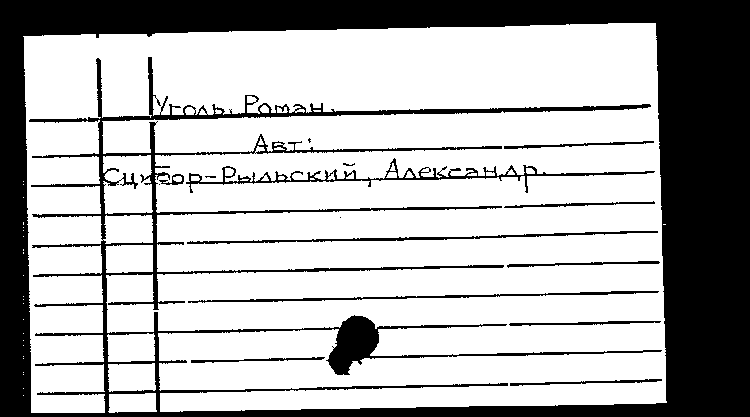 Уголь. Роман.
Авт:
Сцибор-Рыльский, Александр.